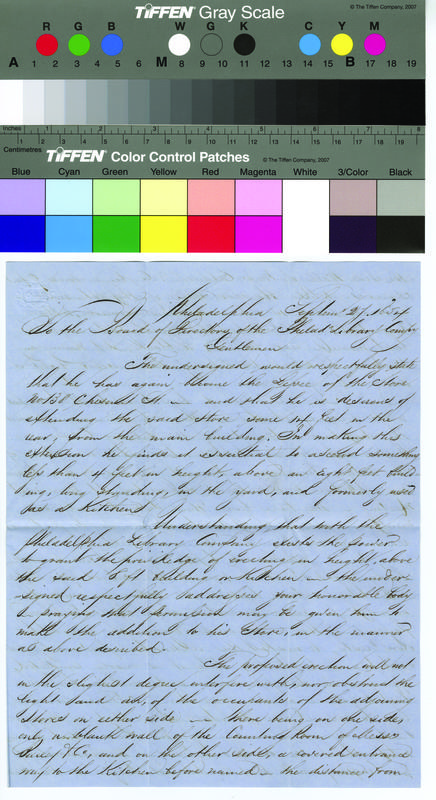 TIFFEN® Gray Scale
© The Tiffen Company, 2007
R G B W G K C Y M
A 1 2 3 4 5 6 M 8 9 10 11 12 13 14 15 B 17 18 19
Inches 1 2 3 4 5 6 7 8
Centimetres 1 2 3 4 5 6 7 8 9 10 11 12 13 14 15 16 17 18 19
TIFFEN® Color Control Patches © The Tiffen Company, 2007
Blue Cyan Green Yellow Red Magenta White 3/Color Black
Philadelphia Septem 27, 1854
To the Board of Directors of the Philad. Library Compy
Gentlemen
The undersigned would respectfully state
that he has again become the Lessee of the Store
No 130 Chesnut St. — and that he is desirous of
extending the said store some feet in the
rear, from the main building. In making this
extension he finds it essential to ascend something
less than 4 feet in height, above an eight feet build
ing, long standing, in the yard, and formerly used
as a Kitchen
Understanding that with the
Philadelphia Library Company exists the power
to grant the priviledge of erecting in height, above
the said 8 ft building or Kitchen — the under
signed respectfully addresses your honorable body
praying that permission may be given him to
make the addition to his Store, in the manner
as above described.
The proposed erection will not
in the slightest degree interfere with, nor obstruct the
light and air, of the occupants of the adjoining
Stores on either side — there being on one side,
only a blank wall of the Counting Room of Messrs
& Co, and on the other side, a covered entrance
way to the Kitchen before named — the distance from